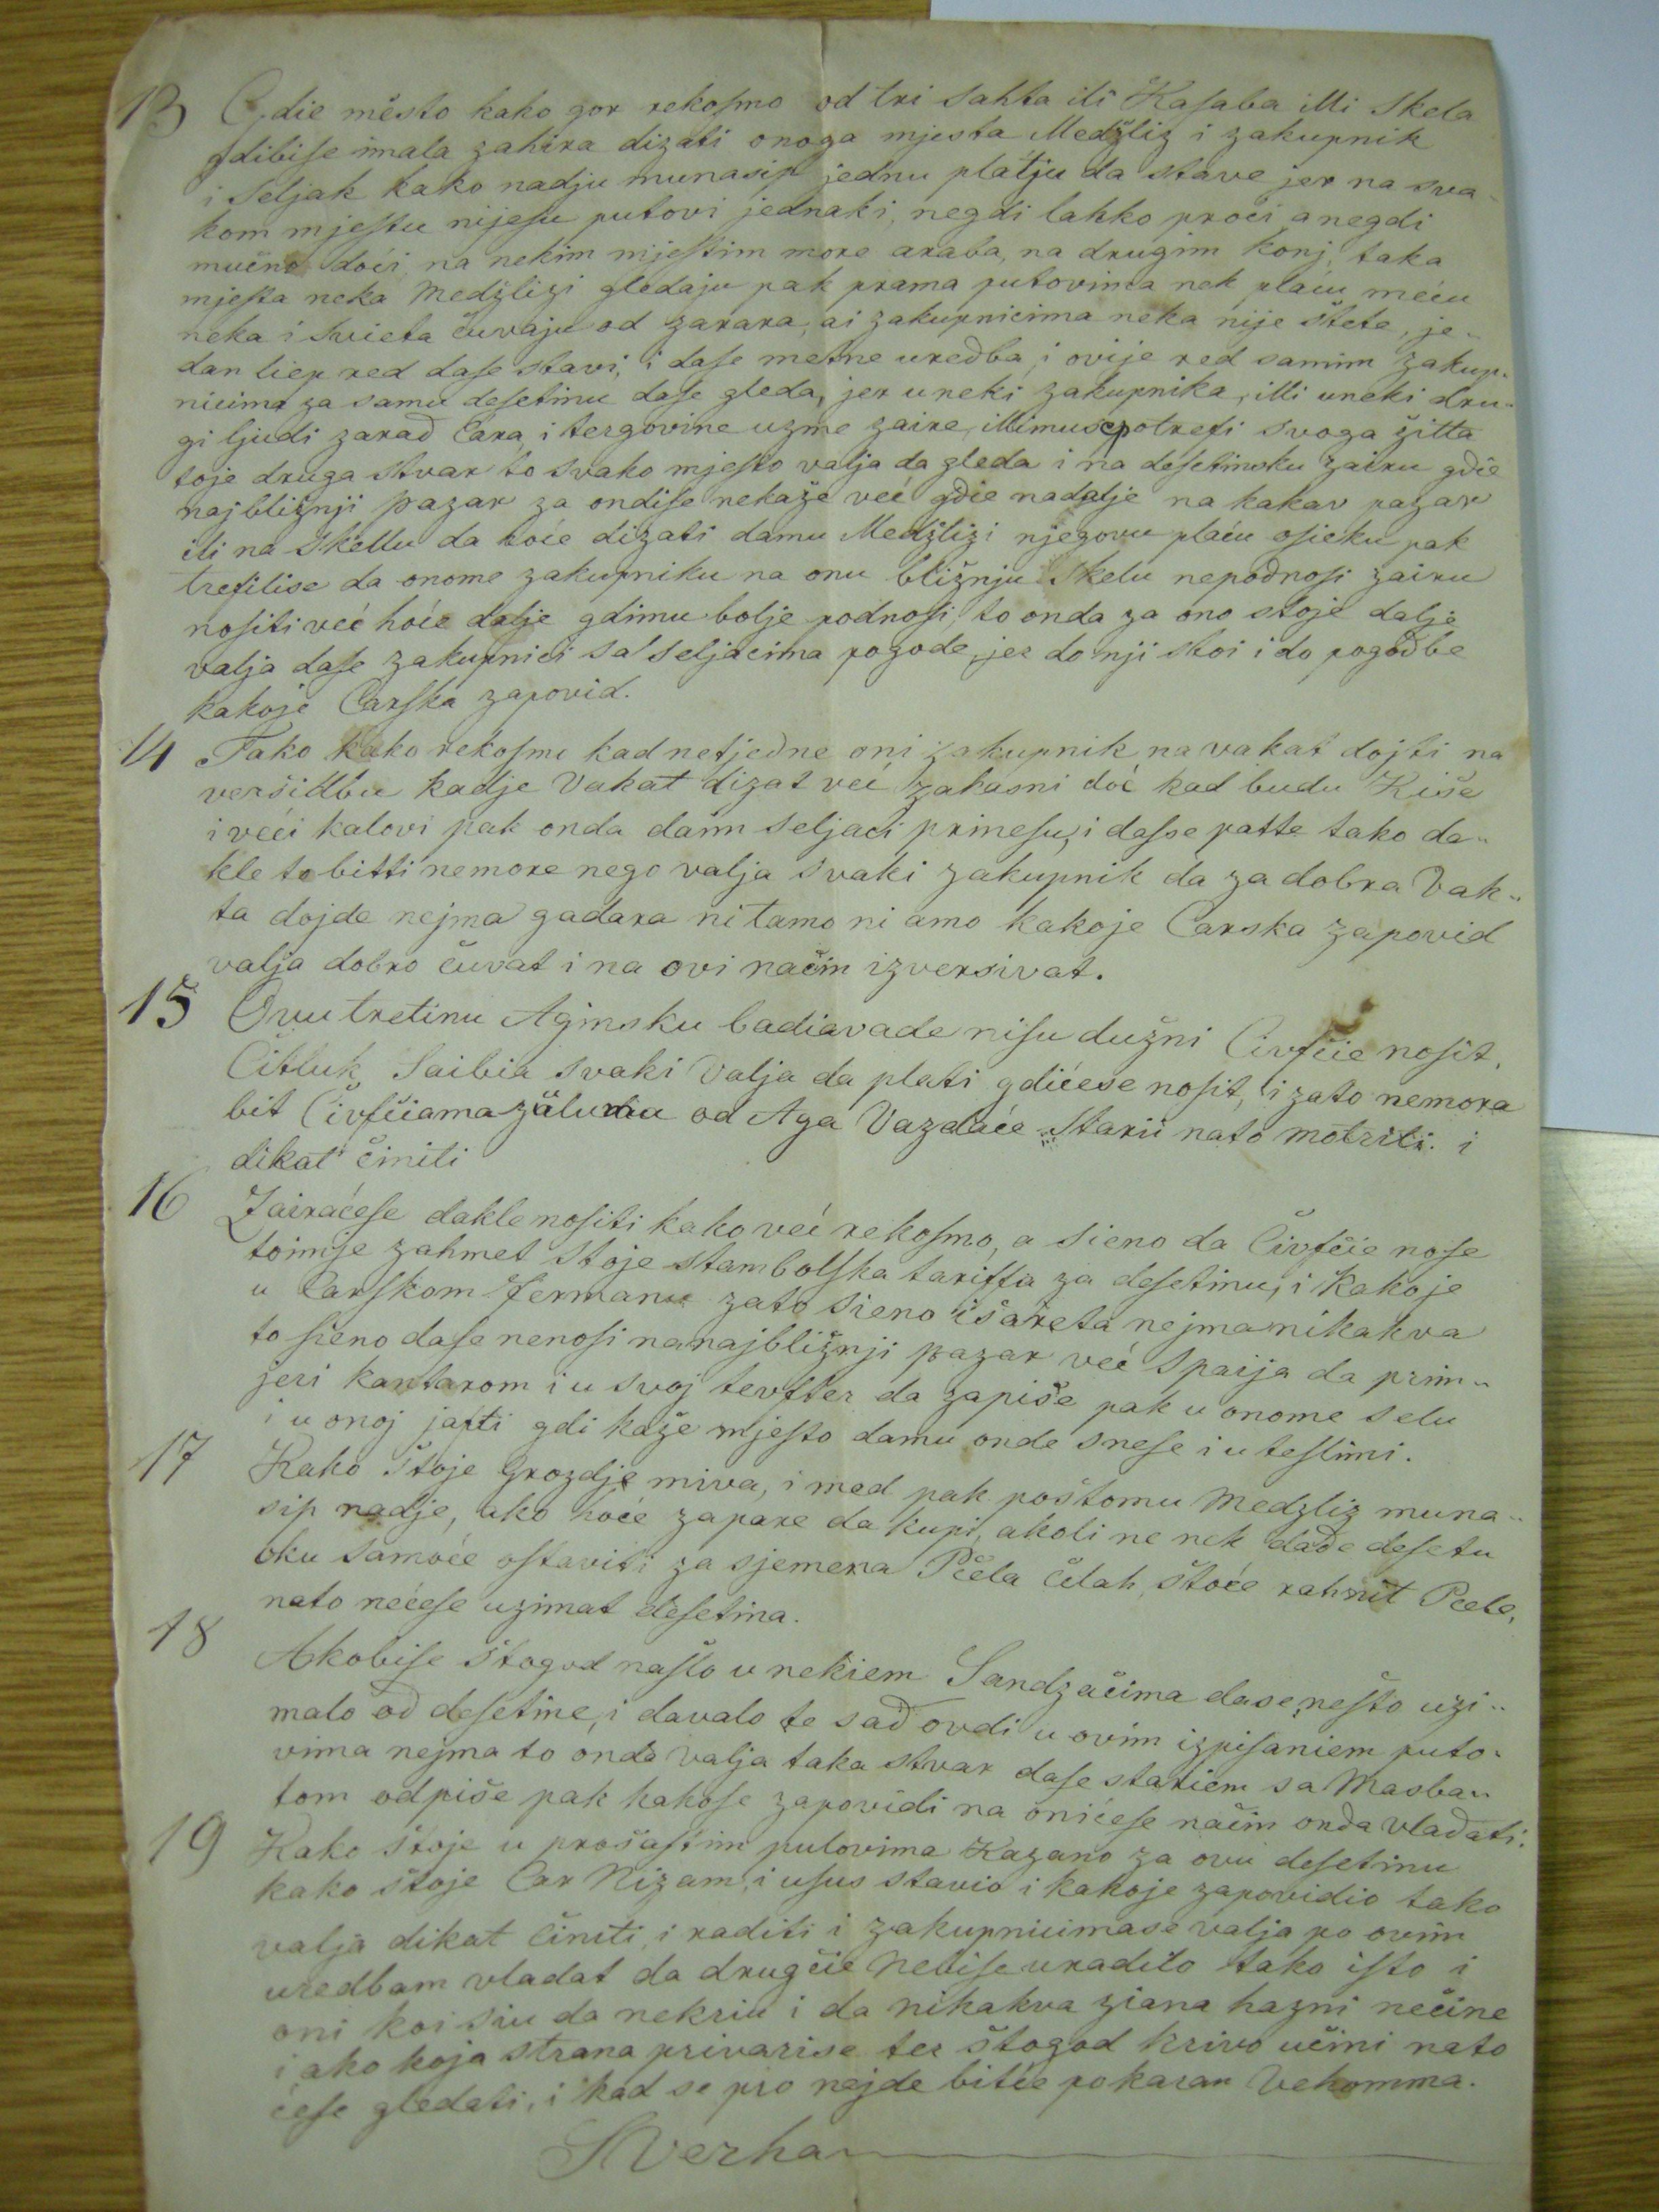 13 Gdie město kako gor rekosmo od tri sahta ili Kasaba illi Skela
gdibise imala zahira dizati onoga mjesta Medžliz i zakupnik
i Seljak kako nadju munasip jednu platju da stave jer na sva-
kom mjestu nijesu putovi jednaki, negdi lahko proći a negdi
mučno doći, na nekim mjestim more araba, na drugim konj, taka
mjesta neka Medžlizi gledaju pak prama putovima nek plaću meću
neka i svieta čuvaju od zarara, ai zakupnicima neka nije štete, je-
dan liep red dase stavi, i dase metne uredba, i ovije red samim zakup-
nicima za samu desetinu dase gleda, jer uneki zakupnika, illi uneki dru-
gi ljudi zarad Ćara, i tergovine uzme zaire, illimuse potrefi svoga žitta
toje druga stvar to svako mjesto valja da gleda i na desetinsku zairu gdie
najbližnji pazar za ondise nekaže već gdie nadalje na kakav pazar
ili na Skellu da hoće dizati damu Medžlizi njegovu plaću osieku pak
trefilise da onome zakupniku na onu bližnju Skelu nepodnosi zairu
nositi već hoće dalje gdimu bolje podnosi, to onda za ono stoje dalje
valja dase zakupnici sa seljacima pogode, jer do nji stoi i do pogodbe
kakoje Carska zapovid.
14 Tako kako rekosmo kad netjedne oni zakupnik na vakat dojti na
veršidbu kadje Vakat dizat već zakasni doć kad budu Kiše
i veći kalovi pak onda daim seljaci prinesu, i dasse patte tako da-
kle to bitti nemore nego valja svaki zakupnik da za dobra Vak-
ta dojde nejma gadara ni tamo ni amo kakoje Carska zapovid
valja dobro čuvat i na ovi način izversivat.
15 Ovu tretinu Aginsku badiavade nisu dužni Čivfčie nosit,
Čitluk Saibia svaki Valja da plati gdićese nosit, i zato nemora
bit Čivfčiama zäluma od Aga Vazdaće Starii nato motriti. i
dikat činiti
16 Zairaćese dakle nositi kako već rekosmo, a sieno da Čivfčie nose
toimje zahmet stoje stambolska tariffa za desetinu, i kakoje
u Carskom fermanu zato sieno išareta nejma nikakva
to sieno dase nenosi nanajbližnji pazar već Spaija da prim-
jeri kantarom i u svoj tevfter da zapiše pak u onome selu
i u onoj jafti gdi kaže mjesto damu onde snese i u teslimi.
17 Kako štoje Grozdje miva, i med pak poštomu Medžliz muna-
sip nadje, ako hoće zapare da kupi, akoli ne nek dade desetu
oku samoće ostaviti za sjemena Pčela čilah, štoće rahnit Pčele,
nato nećese uzimat desetina.
18 Akobise štogod našlo u nekiem Sandžačima dase nešto uzi-
malo od desetine, i davalo te sad ovdi u ovim izpisaniem puto-
vima nejma to onda valja taka stvar dase statiem sa Masba-
tom odpiše pak kakose zapovidi na onićese način onda vladati.
19 Kako štoje u prošastim putovima Kazano za ovu desetinu
kako štoje Car Nizam, i usus stavio i kakoje zapovidio tako
valja dikat činiti, i raditi i zakupnicimase valja po ovim
uredbam vladat da drugčie nebise uradilo tako isto i
oni koi siu da nekriu i da nikakva ziana hazni nečine
i ako koja strana privarise ter štogod krivo učini nato
ćese gledati, i kad se pro nejde bitće pokaran Vehomma.
SVerha